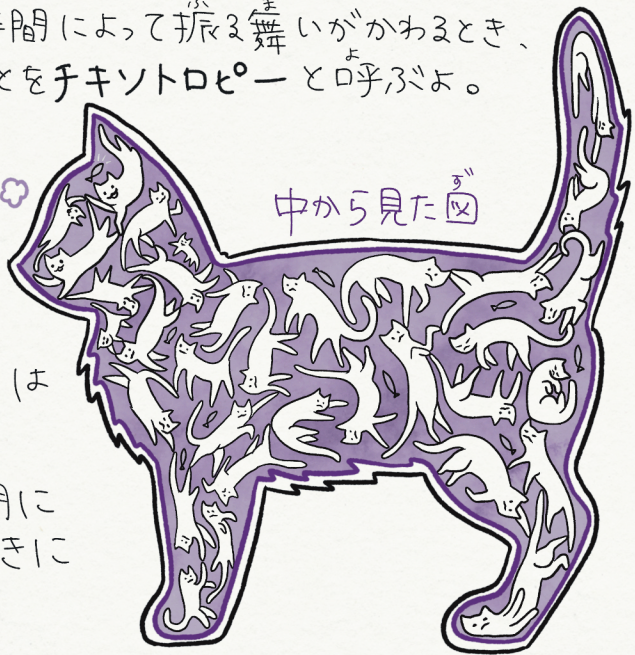 時間によって振る舞いがかわるとき、
とをチキソトロピーと呼ぶよ。
中から見た図
は
に
きに